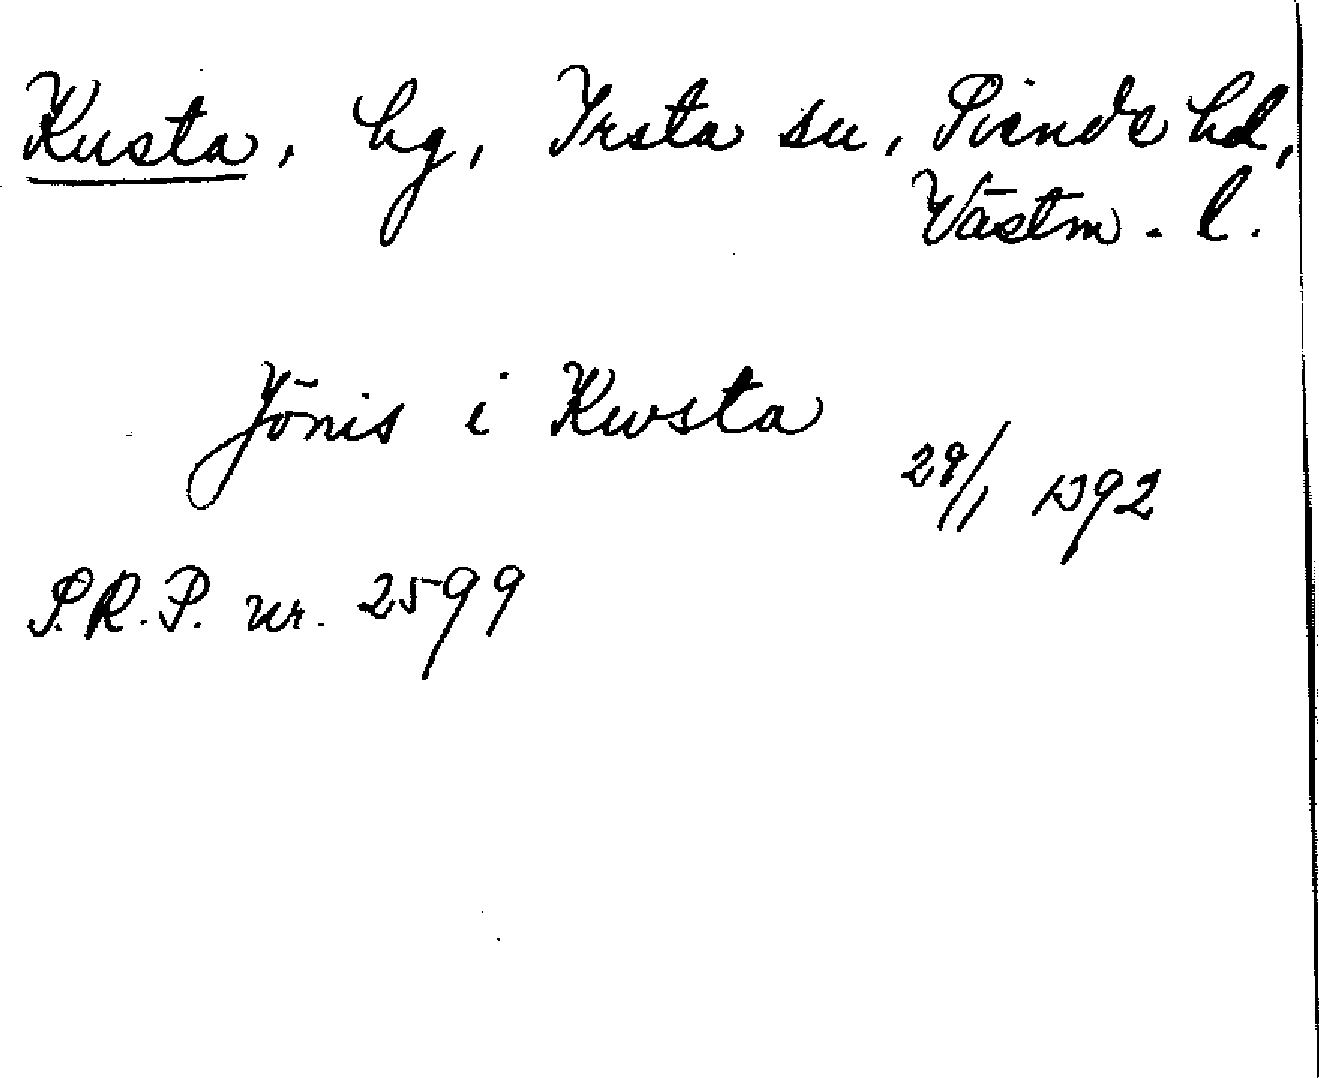 Kusta, hg, Irsta sn, Siende hd,
Västm. l.
Jönis i Kwsta
29/1 1392
S.R.P. nr. 2599